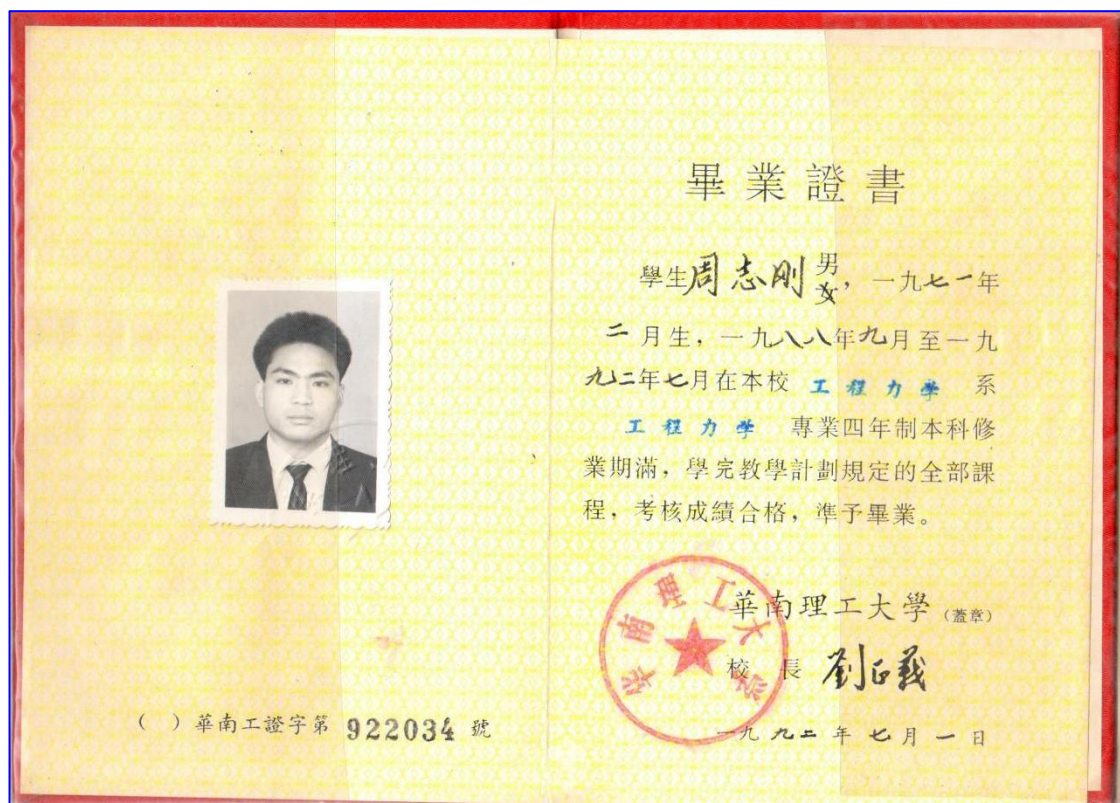 畢業證書
學生周志刚男女，一九七一年
二月生，一九八八年九月至一九
九二年七月在本校 工程力学 系
工程力学 專業四年制本科修
業期滿，學完教學計劃規定的全部課
程，考核成績合格，準予畢業。
華南理工大學（蓋章）
校 長 劉正義
一九九二年七月一日
华南理工大学
（ ）華南工證字第 922034 號